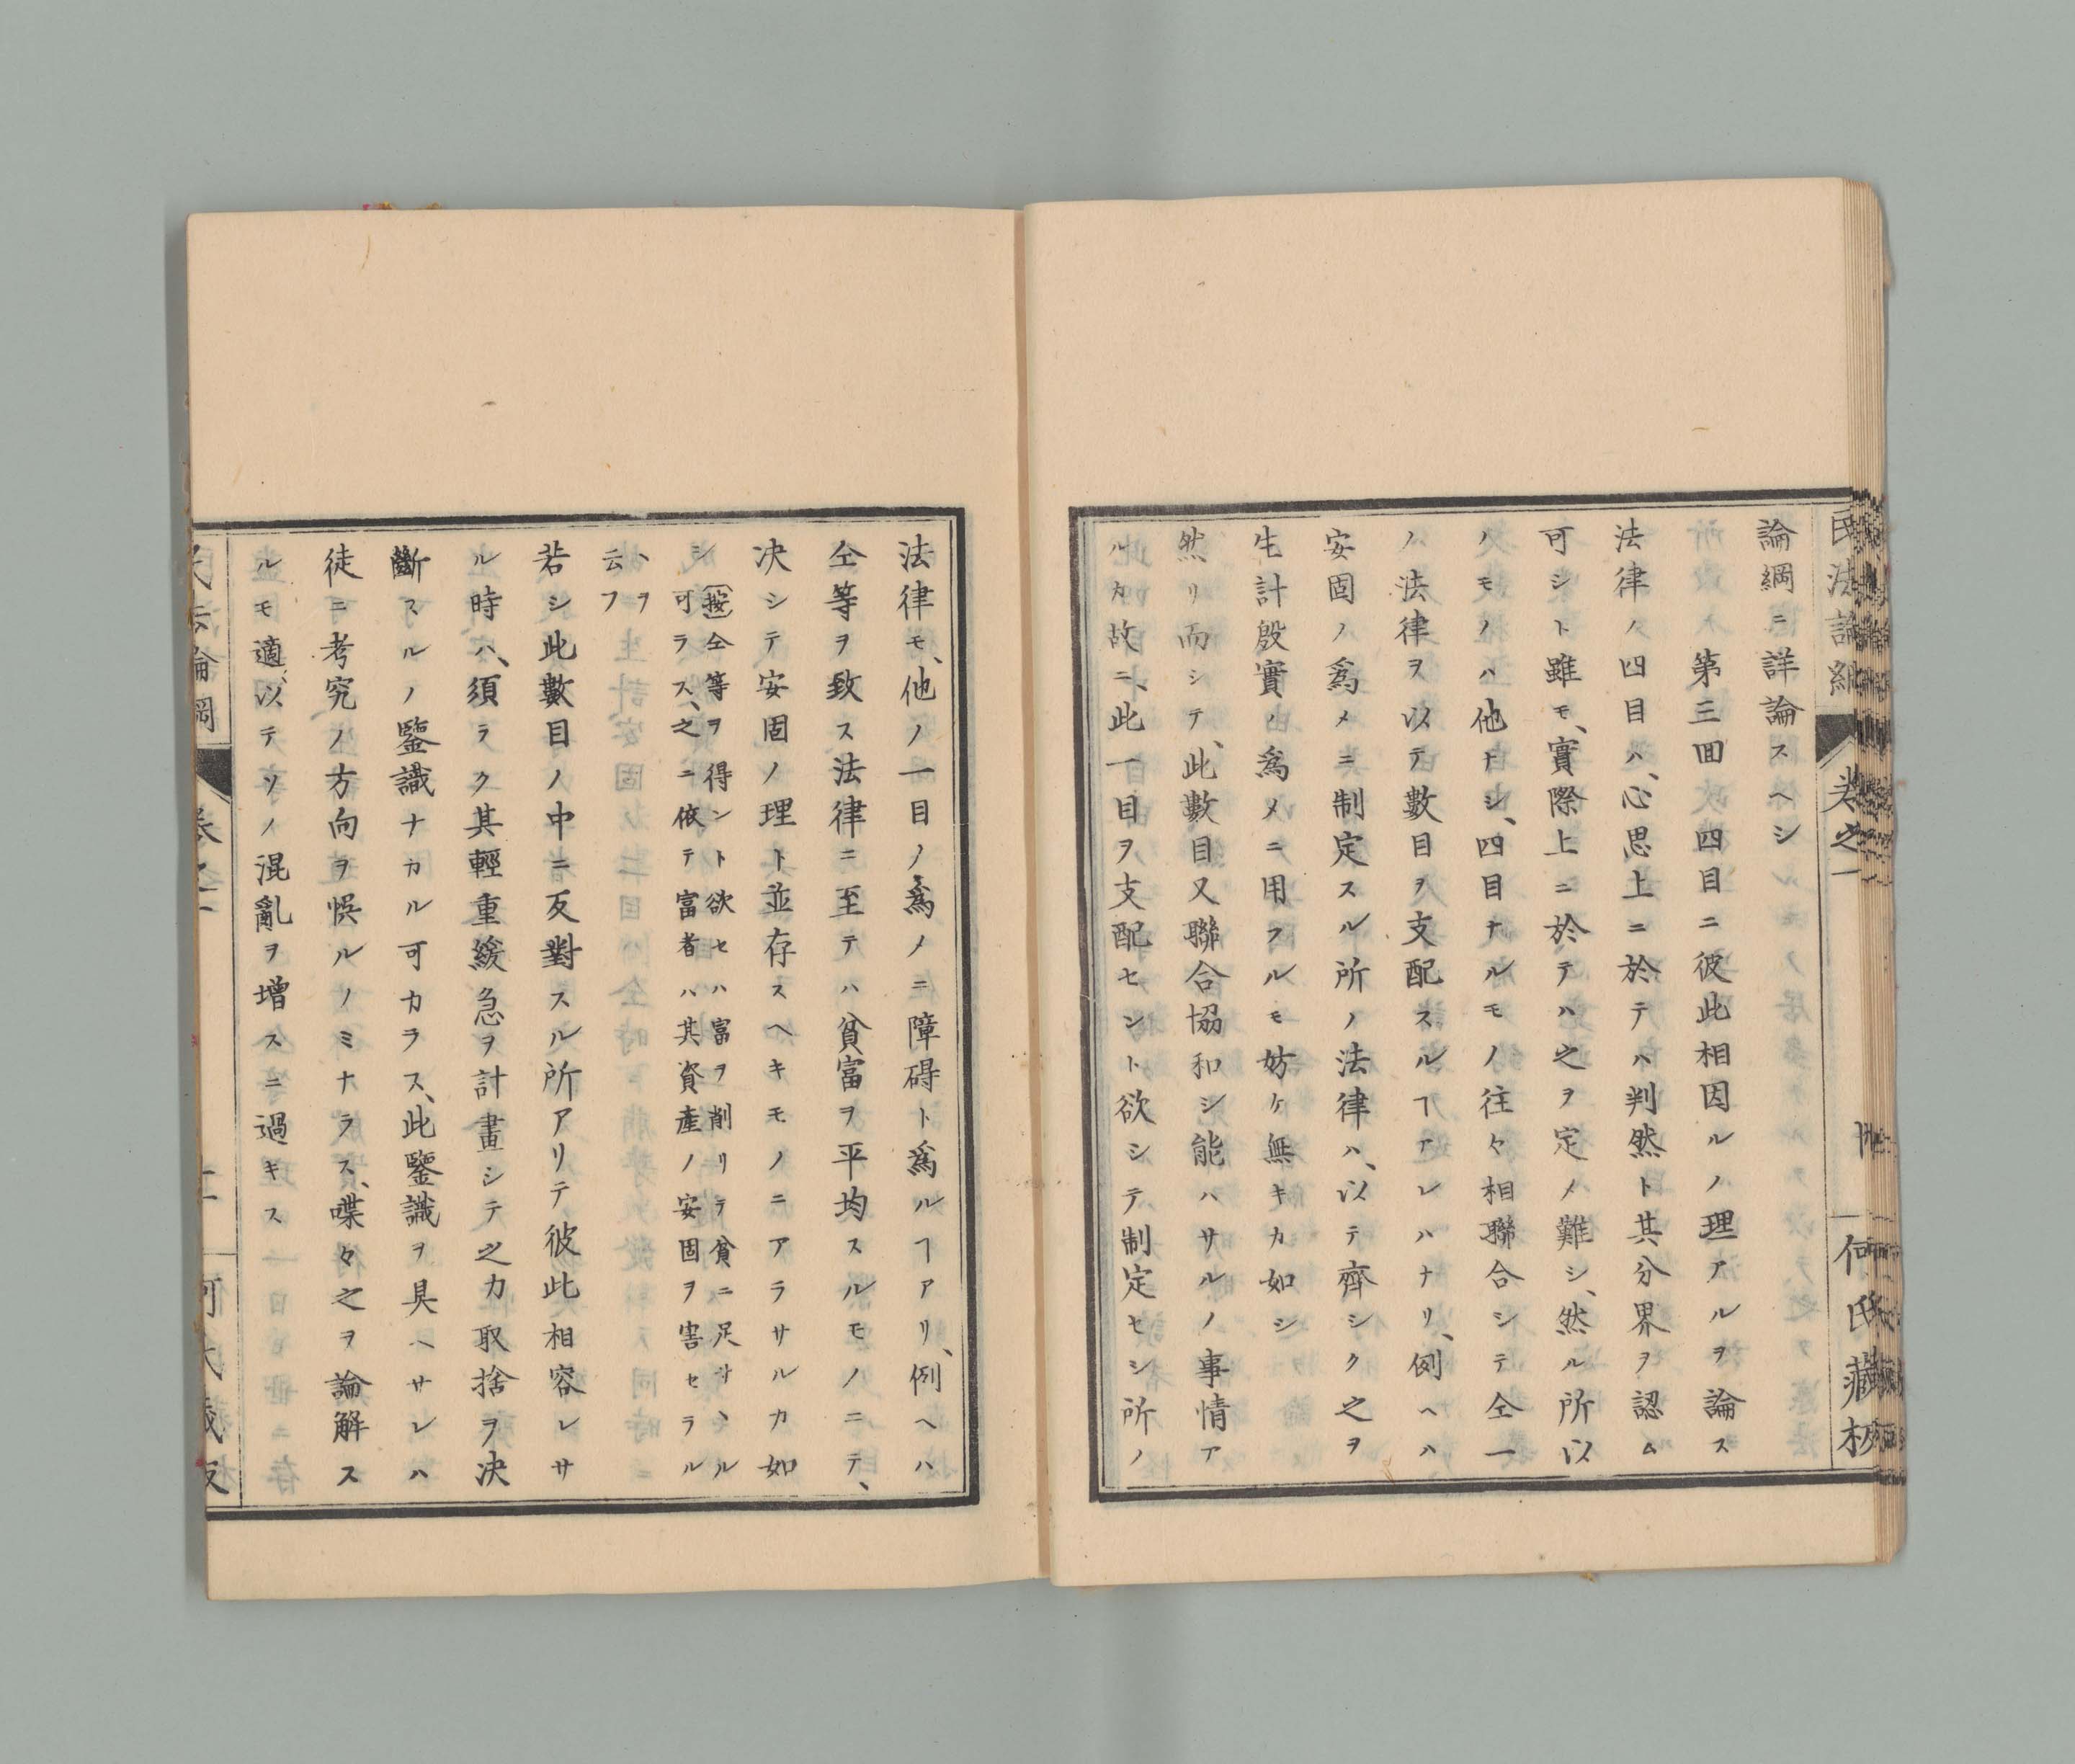 民法論綱
卷之一
何氏藏板
論綱ニ詳論スヘシ
第三回 四目ニ彼此相因ルノ理アルヲ論ス
法律ノ四目ハ、心思上ニ於テハ判然ト其分界ヲ認ム
可シト雖モ、實際上ニ於テハ之ヲ定メ難シ、然ル所以
ノモノハ他ナシ、四目ナルモノ往々相聯合シテ仝一
ノ法律ヲ以テ數目ヲ支配スルヿアレハナリ、例ヘハ
安固ノ爲メニ制定スル所ノ法律ハ、以テ齊シク之ヲ
生計殷實ノ爲メニ用フルモ妨ケ無キカ如シ
然リ而シテ、此數目又聯合協和シ能ハサルノ事情ア
ルカ故ニ、此一目ヲ支配セント欲シテ制定セシ所ノ
法律モ、他ノ一目ノ爲メニ障碍ト爲ルヿアリ、例ヘハ
仝等ヲ致ス法律ニ至テハ貧富ヲ平均スルモノニテ、
决シテ安固ノ理ト並存スヘキモノニアラサルカ如
シ
〔按〕仝等ヲ得ント欲セハ富ヲ削リテ貧ニ足サヽル
可ラス、之ニ依テ富者ハ其資産ノ安固ヲ害セラル
ヽヲ
云フ
若シ此數目ノ中ニ反對スル所アリテ彼此相容レサ
ル時ハ、須ラク其輕重緩急ヲ計畫シテ之カ取捨ヲ决
斷スルノ鑒識ナカル可カラス、此鑒識ヲ具ヘサレハ
徒ニ考究ノ方向ヲ悞ルノミナラス、喋々之ヲ論解ス
ルモ適、以テソノ混亂ヲ增スニ過キス
卷之一